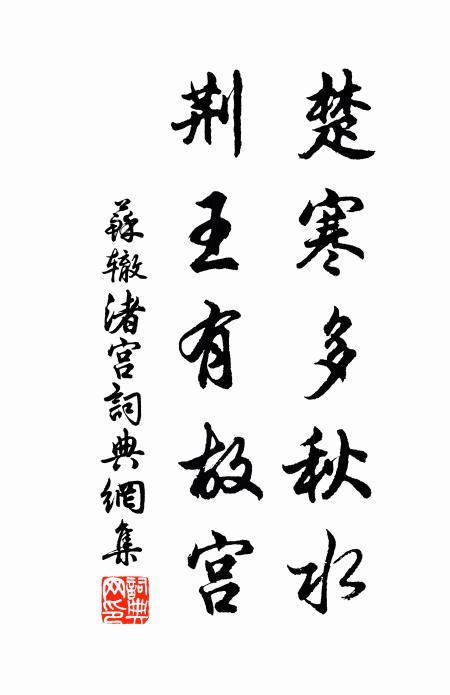 楚寒多秋水
荆王有故宫
蘇辙渚宫詞典網集